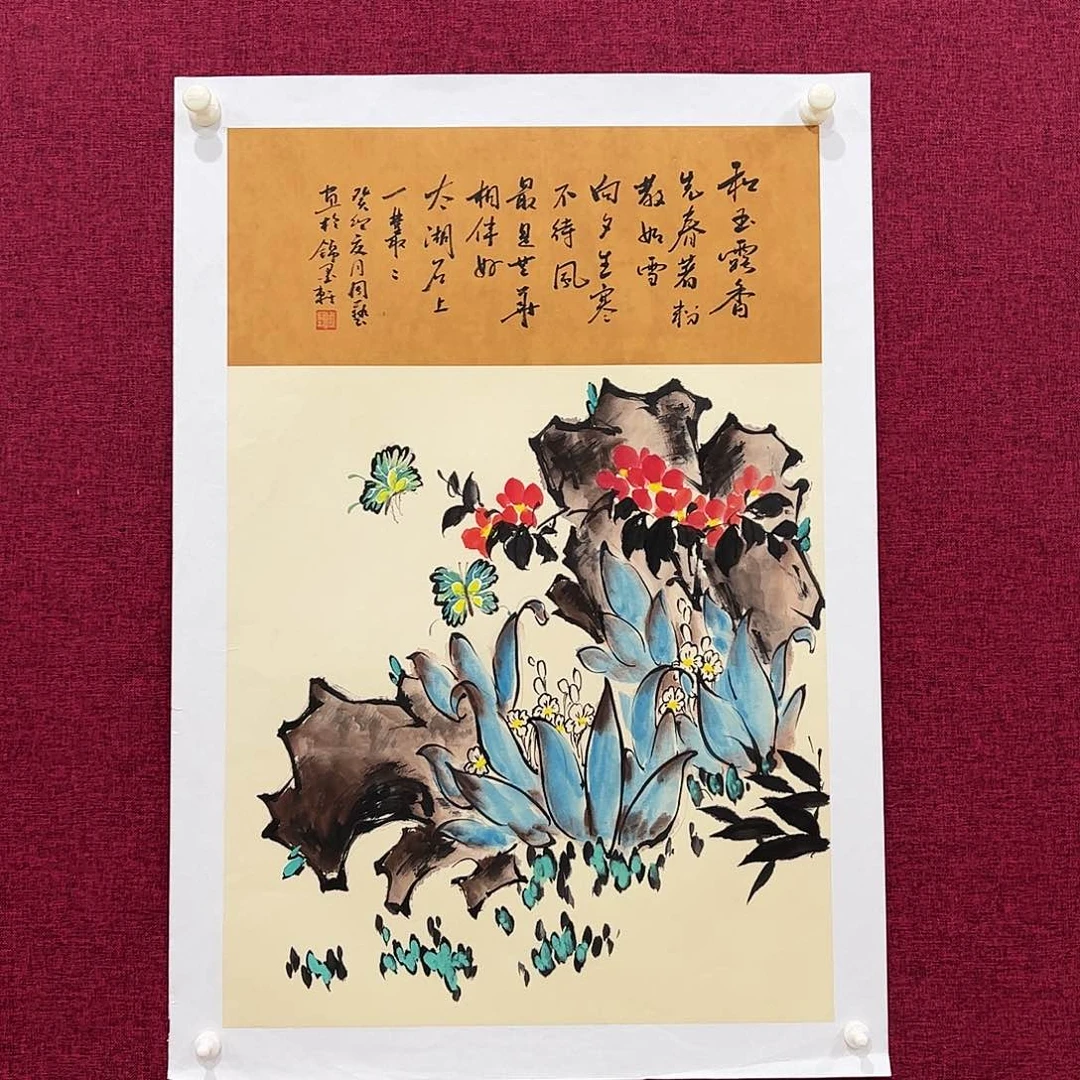 和玉露香
先春著粉
散如雪
向夕生寒
不待風
最是華
相伴好
太湖石上
一叢〻
癸卯夏月周藝
畫於錦墨軒